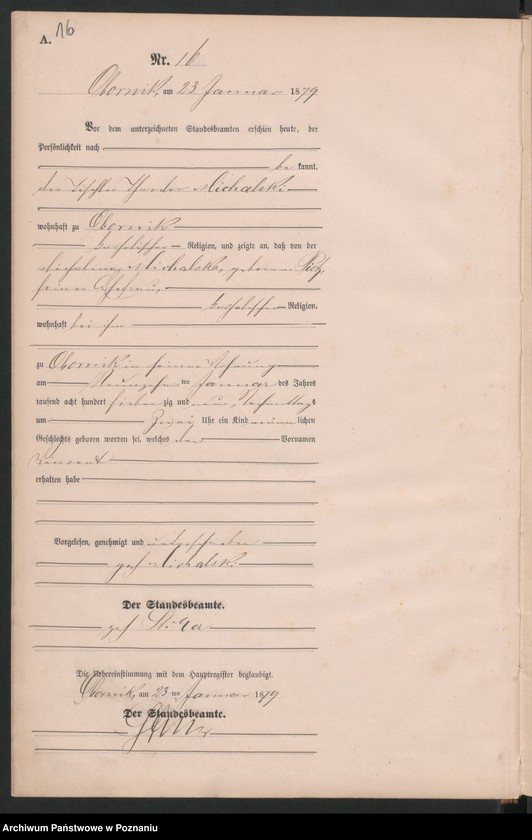 A. 16
Nr. 16
Obornik, am 23 Januar 1879
Vor dem unterzeichneten Standesbeamten erschien heute, der
Persönlichkeit nach
be kannt,
der Tischler Theodor Michalski
wohnhaft zu Obornik
katholischer Religion, und zeigte an, daß von der
Michalina Michalska, geborenen
seiner Ehefrau,
katholischer Religion,
wohnhaft bei ihm
zu Obornik in seiner Wohnung
am neunzehn ten Januar des Jahres
tausend acht hundert sieben zig und neun, Nachmittags
um zwei Uhr ein Kind männlichen
Geschlechts geboren worden sei, welches den Vornamen
Vincent
erhalten habe
Vorgelesen, genehmigt und unterschrieben
gez Michalski
Der Standesbeamte.
gez
Die Uebereinstimmung mit dem Hauptregister beglaubigt.
Obornik, am 23 ten Januar 1879
Der Standesbeamte.
Archiwum Państwowe w Poznaniu